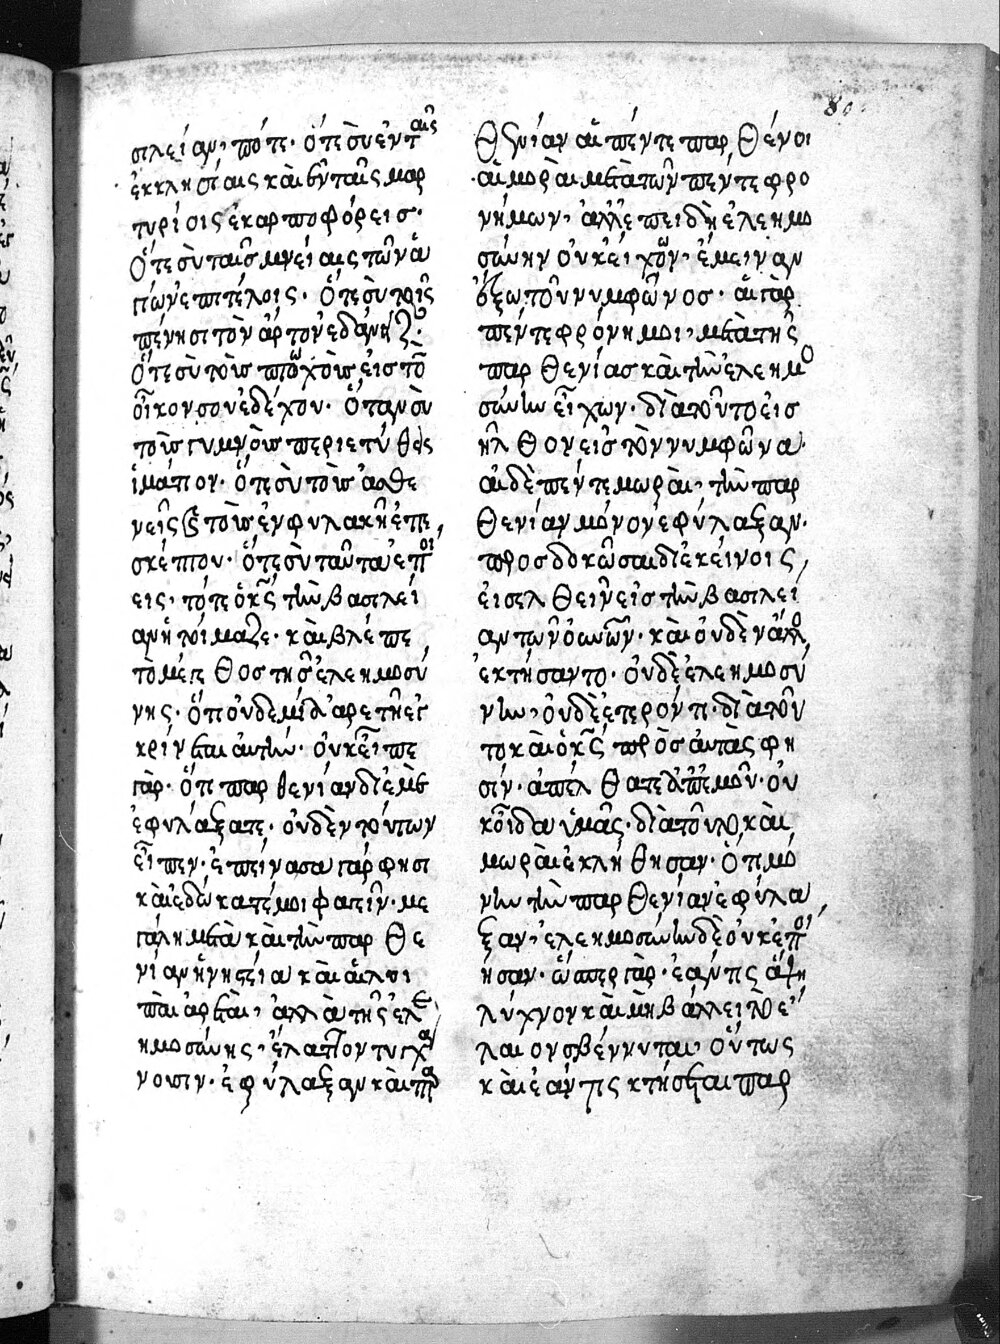 80
σιλείαν· πότε· ὅτε σὺ ἐν ταῖς
ἐκκλησίαις καὶ ἐν ταῖς μαρ
τυρίσις ἐκαρποφόρεις·
Ὅτε σὺ ταῖς μνείαις τῶν ἁ
γίων ἐπιτέλοις· Ὅτε σὺ τοῖς
πένησι τὸν ἄρτον ἐδάνηζες·
Ὅτε σὺ τοὺς πτωχοὺς εἰς τὸν
οἶκον σου ἐδέχου· Ὅταν σὺ
τοὺς γυμνοὺς περιετύθεις
ἱμάτιον· ὅτε σὺ τοὺς ἀσθε
νεῖς καὶ τοὺς ἐν φυλακῆ ἐπε
σκέπτου· ὅτε σὺ ταῦτα ἐποί
εις· τότε ὁ κς τὴν βασιλεί
αν ἡτοίμαζε· καὶ βλέπε
τὸ μέγεθος τῆς ἐλεημοσύ
νης· ὅτι οὐδεμία ἀρετὴ ἐγ
κρίνεται αὐτήν· οὐκ εἶπε
γὰρ· ὅτι παρθενίαν δι ἐμὲ
ἐφυλάξατε· οὐδὲν τούτων
εἶπεν· ἐπείνασα γάρ φησι
καὶ ἐδώκατέ μοι φαγεῖν· με
γάλη μετὰ καὶ τὴν παρθε
νίαν ἡ νηστία καὶ αἱ λοι
παὶ ἀρεταὶ· ἀλλὰ τῆς ἐλε
ημοσύνης· ἔλαττον τυγχά
νουσιν· ἐφύλαξαν καὶ παρ
θενίαν αἱ πέντε παρθένοι
αἱ μοραὶ μετὰ τῶν πέντε φρο
νήμων· ἀλλ ἐπειδὴ ἐλεημο
σύνην οὐκ εἶχον· ἔμειναν
ἔξω τοῦ νυμφῶνος· αἱ γὰρ
πέντε φρόνημοι· μετὰ τῆς
παρθενίας καὶ τὴν ἐλεημο
σύνην εἶχων· διὰ τοῦτο εἰσ
ῆλθον εἰς τὸν νυμφῶνα·
αἱ δὲ πέντε μωραὶ· τὴν παρ
θενίαν μόνον ἐφύλαξαν·
προσδοκῶσαι δι ἐκείνοις
εἰσελθεῖν εἰς τὴν βασιλεί
αν τῶν οὐνῶν· καὶ οὐδὲν ἄλλο
ἐκτήσαντο· οὐδὲ ἐλεημοσύ
νην· οὐδὲ ἕτερόν τι· διὰ τοῦ
το καὶ ὁ κς πρὸς αὐτὰς φη
σίν· ἀπέλθατε ἀπ ἐμοῦ· οὐ
κ οἶδα ὑμᾶς· διὰ τοῦτο καὶ
μωραὶ ἐκλήθησαν· ὅτι μό
νην τὴν παρθενίαν ἐφύλα
ξαν· ἐλεημοσύνην δὲ οὐκ ἐποί
ησαν· ὥσπερ γὰρ· ἐάν τις ἅψη
λύχνον καὶ μὴ βάλλει τὸ ἔ
λαιον σβέννυται· οὕτως
καὶ ἐάν τις κτήσεται παρ